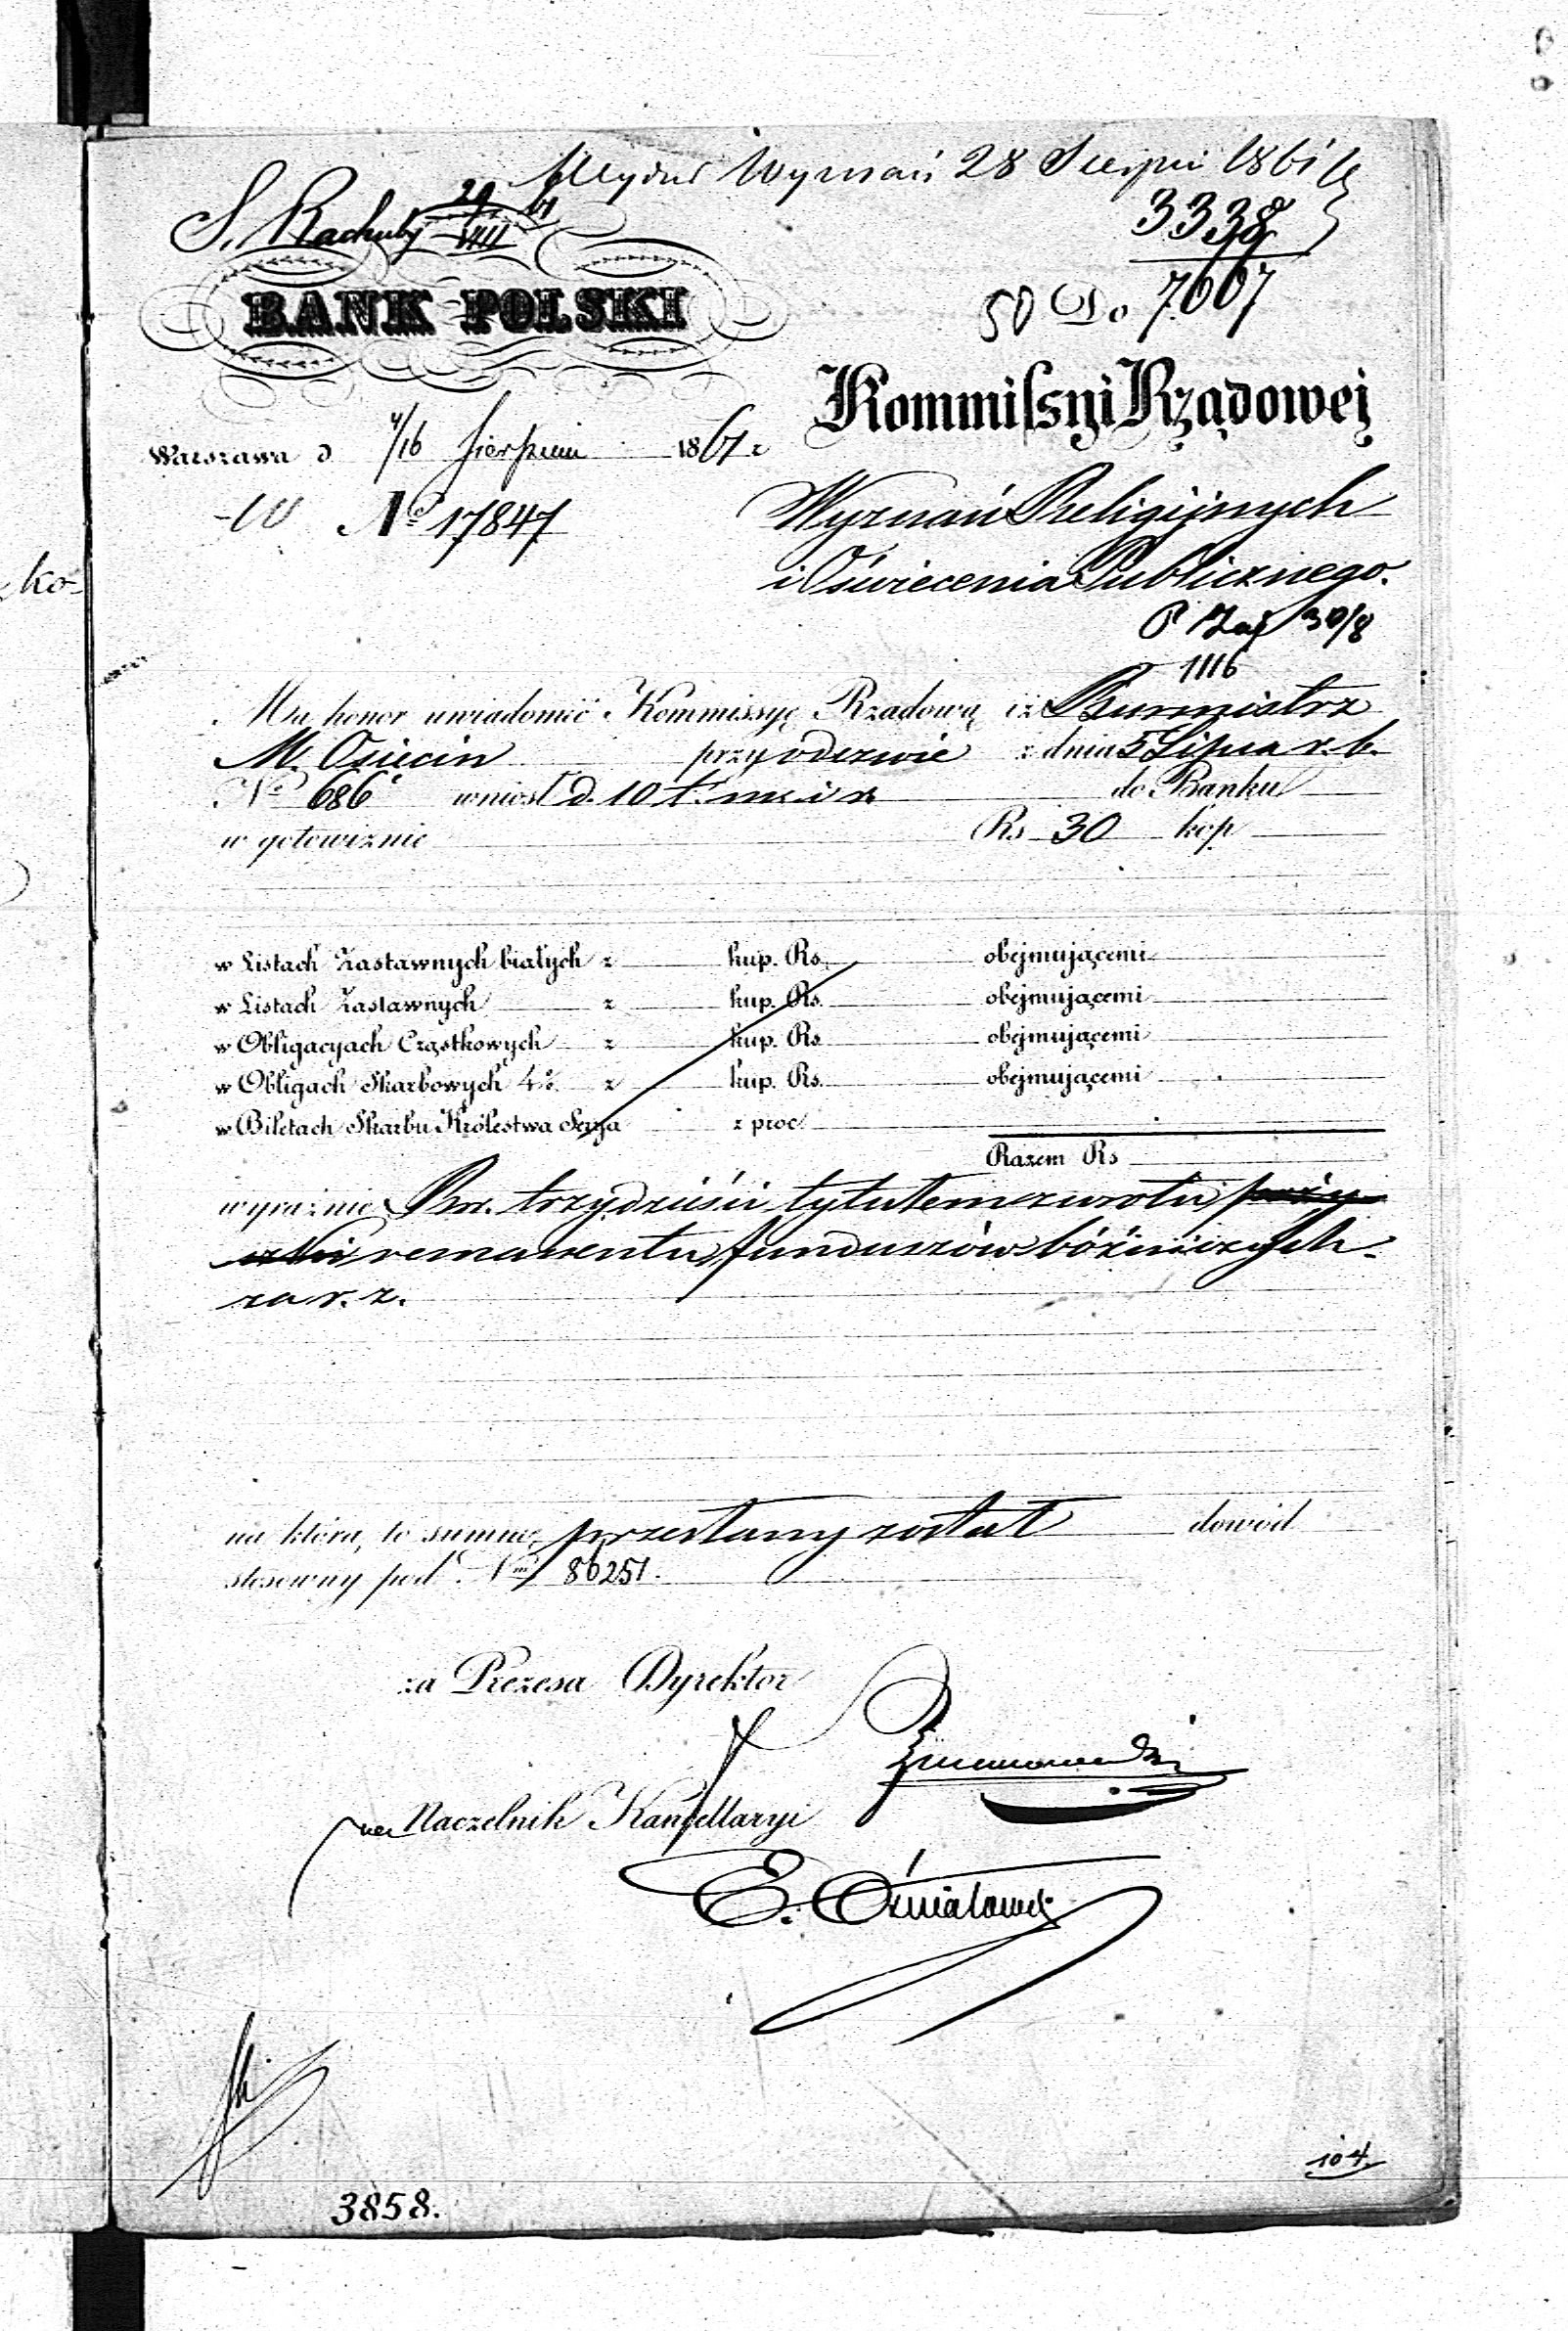 Wyznań 28 Sierpń 1861
S. Rachuby 29/VIII 61
3338
7667
50 Do
BANK POLSKI
Kommissyi Rządowej
Warszawa d 4/16 Sierpnia 1861 r
No 17847
Wyznań Religijnych
i Oświecenia Publicznego.
30/8
1116
ko-
Ma honor uwiadomić Kommissyę Rządową iż Burmistrz
M. Osięcin przy odezwie z dnia 5 Lipca r. b.
No 686 wniósł d. 10 t. m. i r. do Banku
w gotowiznie Rs 30 kop
w Listach Zastawnych białych z kup. Rs. obejmującemi
w Listach Zastawnych z kup. Rs. obejmującemi
w Obligacyach Cząstkowych z kup. Rs. obejmującemi
w Obligach Skarbowych 4% z kup. Rs. obejmującemi
w Biletach Skarbu Królestwa Serya z proc
Razem Rs
wyraźnie Rsr. trzydzieści tytułem zwrotu poży
czki remanentu funduszów bóźniczych
za r. z.
na którą to summę przesłany został dowód
stosowny pod Nm 86251.
za Prezesa Dyrektor
Naczelnik Kancellaryi
3858.
104.